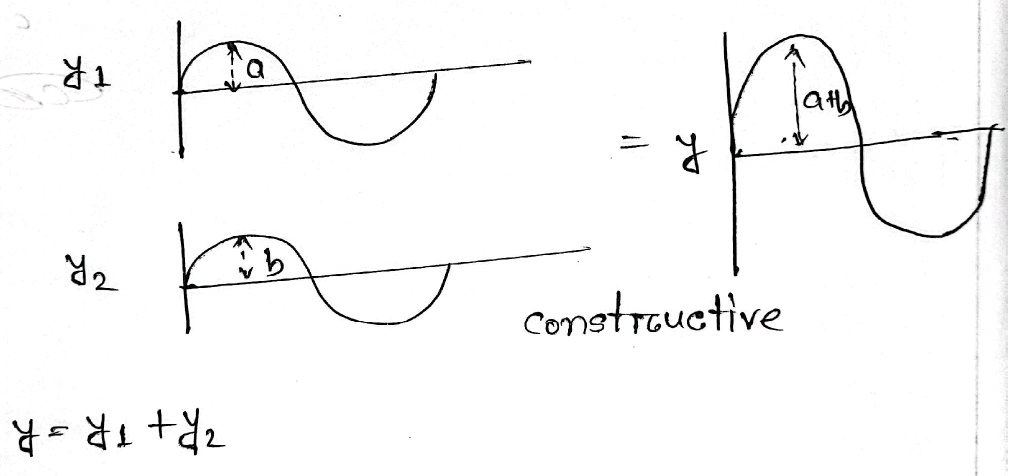 y1
a
= y
a+b
y2
b
constructive
y = y1 + y2